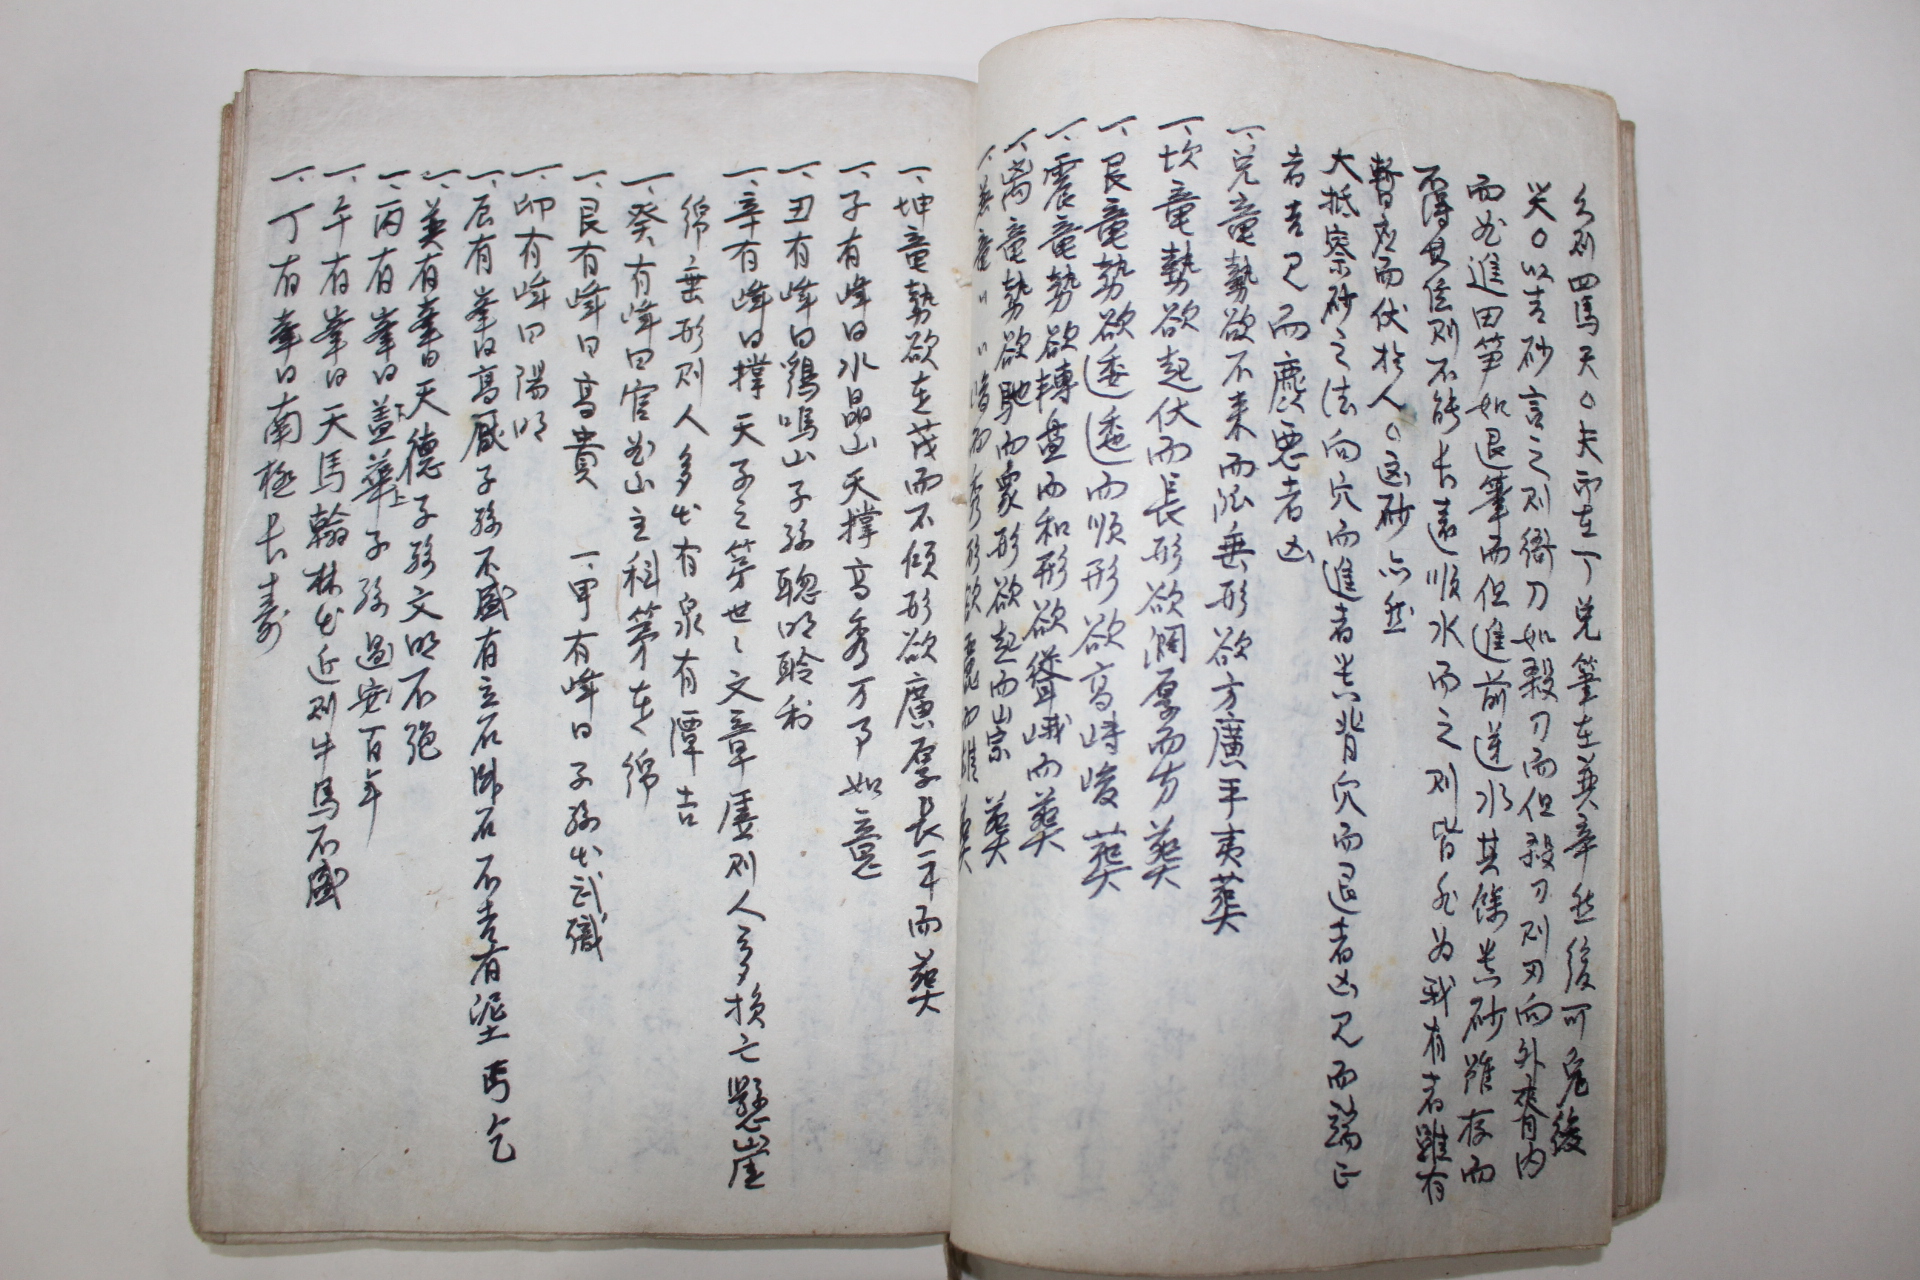 則四馬天○夫 在丁兌 在巽辛然後可 後
矣○以吉砂言之則 刀如殺刀而但殺刀則刃向外 有內
而 進田笋如退筆而但進前逆水其餘 砂雖存而
不得其 則不能長遠順水而之則皆 為我有者雖有
暫 應而伏於人○凶砂亦然
大抵察砂之法向穴而進者吉背穴而退者凶見而端正
者吉見而麁惡者凶
一、兌竜勢欲不来而 垂形欲方廣平夷葬
一、坎竜勢欲起伏而長形欲濶厚而方葬
一、艮竜勢欲逶迤而順形欲高峙峻葬
一、震竜勢欲轉盤而和形欲聳峨而葬
一、离竜勢欲馳而 形欲起而山宗葬
一、巽竜〃〃 而秀形欲 而雄葬
一、坤竜勢欲 茂而不傾形欲廣厚長平而葬
一、子有峰曰水晶山天撑高秀万事如意
一、丑有峰曰鷄鳴山子孫聰明聆利
一、辛有峰曰撑天子之 世〻文章 則人多損亡懸崖
綿垂形則人多 有泉有潭吉
一、癸有峰曰官 山主科第在綿
一、艮有峰曰高貴 一、甲有峰曰子孫出武職
一、卯有峰曰陽明
一、辰有峯曰高 子孫不盛有立石卧石不吉有泥土丐乞
一、巽有峯曰天德子孫文明不絕
一、丙有峯曰盖下華上子孫過安百年
一、午有峯曰天馬翰林出近則牛馬不盛
一、丁有峯曰南極長壽